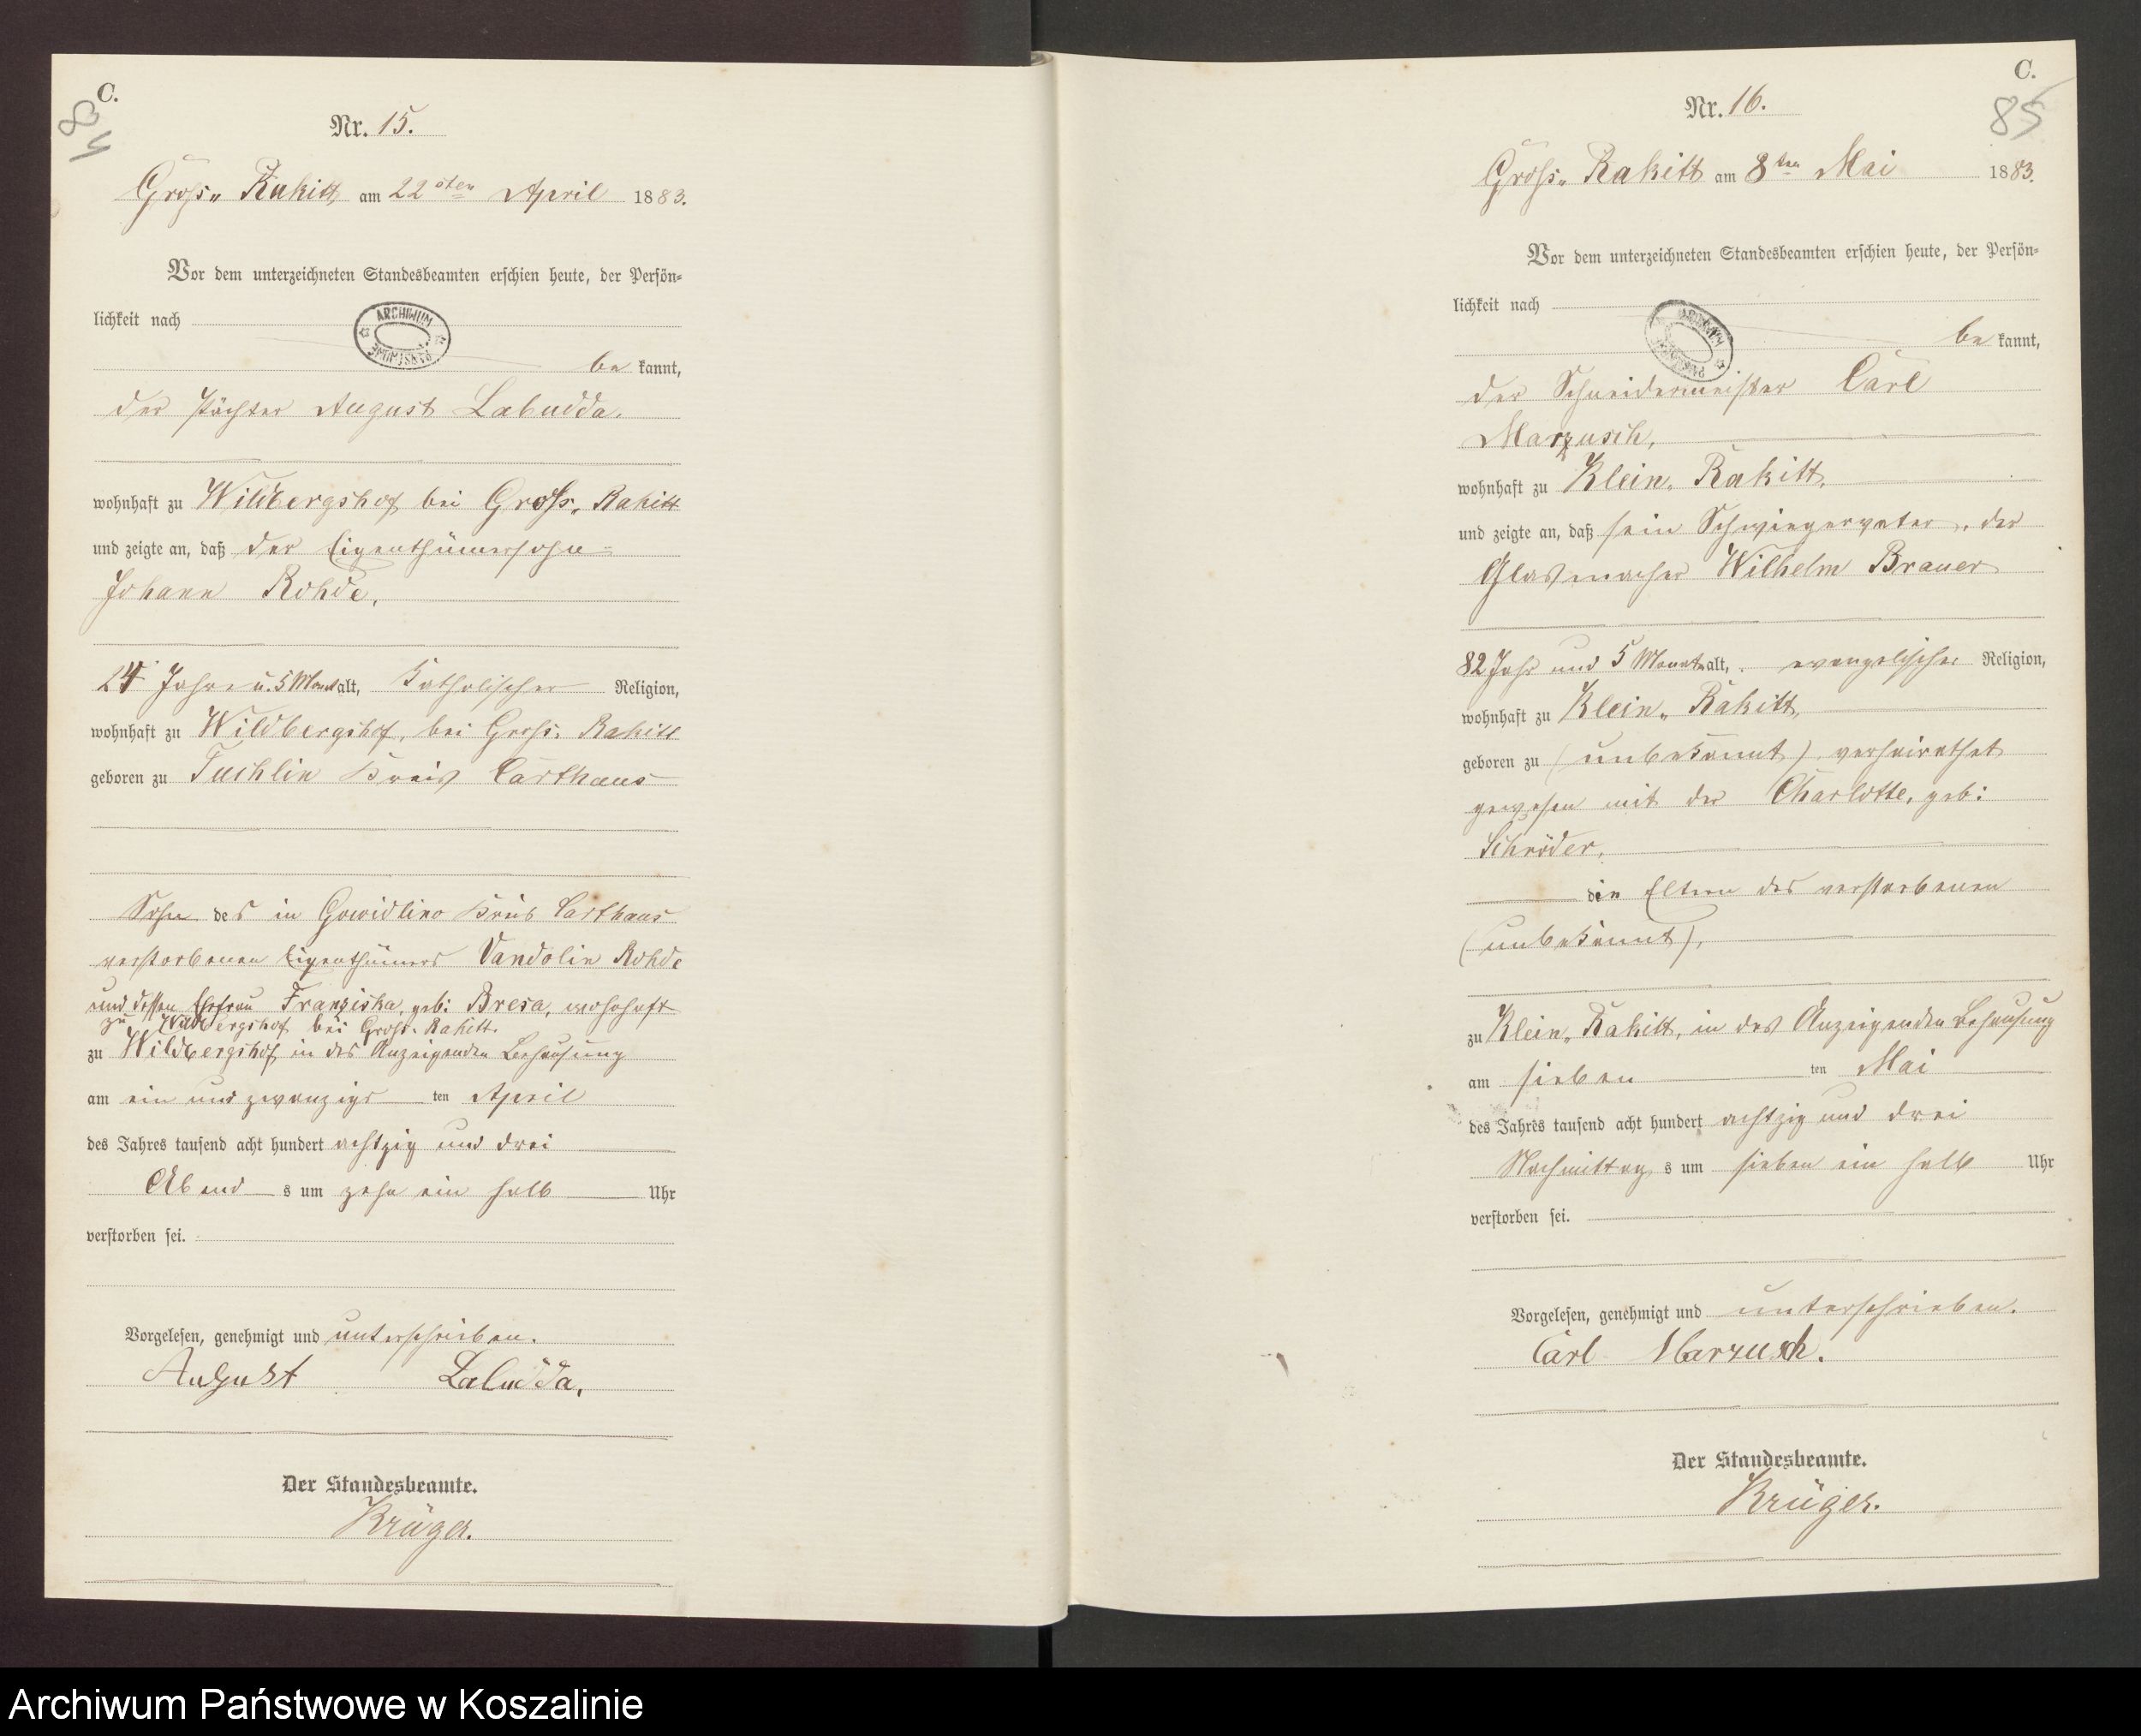 C.
84
Nr. 15.
Gross„ Rakitt, am 22sten April 1883.
Vor dem unterzeichneten Standesbeamten erschien heute, der Persön-
lichkeit nach
ARCHIWUM PAŃSTWOWE
be kannt,
der Pächter August Labudda.
wohnhaft zu Wildbergshof bei Gross„ Rakitt
und zeigte an, daß der Eigenthümersohn
Johann Rohde,
24 Jahre u. 5 Monat alt, Katholischer Religion,
wohnhaft zu Wildbergshof, bei Gross„ Rakitt
geboren zu Tuchlin Kreis Carthaus
Sohn des in Gowidlino Kreis Carthaus
verstorbenen Eigenthümers Vandolin Rohde
und dessen Ehefrau Franziska, geb: Bresa, wohnhaft
zu Wildbergshof bei Gross„ Rakitt.
zu Wildbergshof, in des Anzeigenden Behausung
am ein und zwanzigs ten April
des Jahres tausend acht hundert achtzig und drei
Abend s um zehn ein halb Uhr
verstorben sei.
Vorgelesen, genehmigt und unterschrieben.
August Labudda.
Der Standesbeamte.
Krüger.
C.
85
Nr. 16.
Gross„ Rakitt am 8ten Mai 1883.
Vor dem unterzeichneten Standesbeamten erschien heute, der Persön-
lichkeit nach
ARCHIWUM PAŃSTWOWE
be kannt,
der Schneidermeister Carl
Marzusch,
wohnhaft zu Klein„ Rakitt,
und zeigte an, daß sein Schwiegervater, der
Glasmacher Wilhelm Brauer
82 Jahr und 5 Monat alt, evangelischer Religion,
wohnhaft zu Klein„ Rakitt,
geboren zu (unbekannt) verheirathet
gewesen mit der Charlotte, geb:
Schröder,
die Eltern des verstorbenen
(unbekannt),
zu Klein„ Rakitt, in des Anzeigenden Behausung
am sieben ten Mai
des Jahres tausend acht hundert achtzig und drei
Nachmittag s um sieben ein halb Uhr
verstorben sei.
Vorgelesen, genehmigt und unterschrieben.
Carl Marzusch.
Der Standesbeamte.
Krüger.
Archiwum Państwowe w Koszalinie